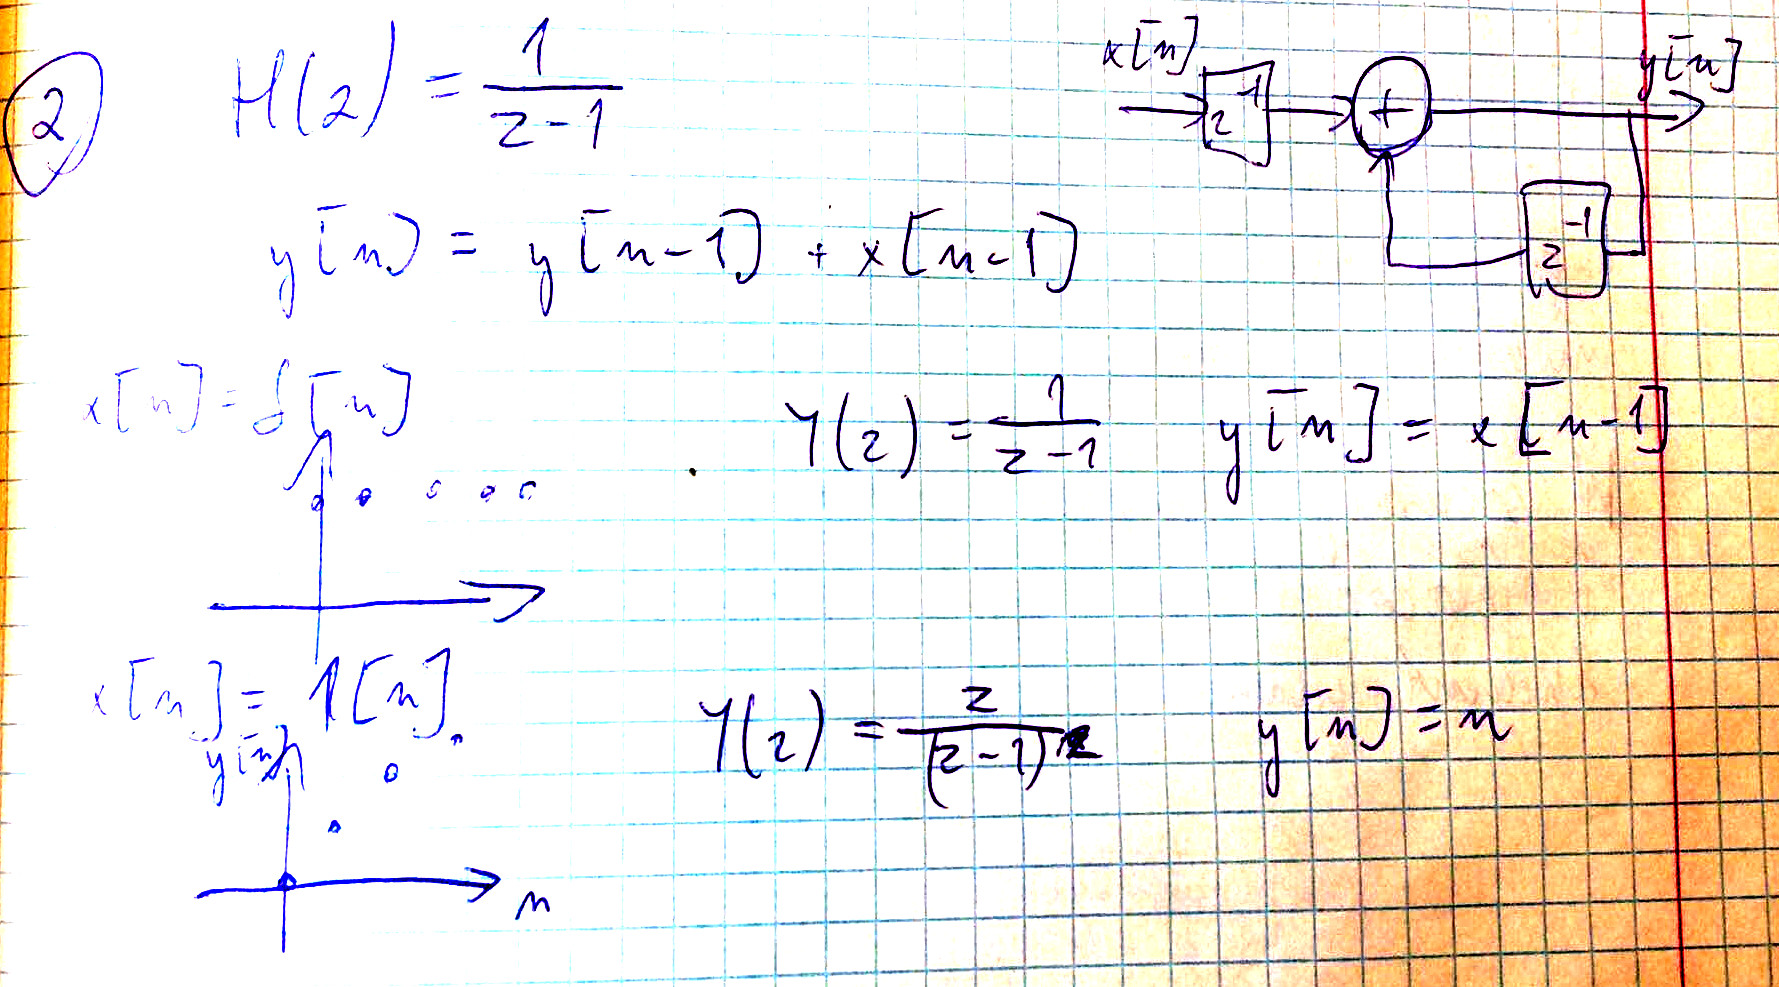 2
H(z) = 1/(z-1)
x[n] z^-1 + y[n]
z^-1
y[n] = y[n-1] + x[n-1]
x[n] = δ[n]
Y(z) = 1/(z-1) y[n] = x[n-1]
x[n] = 1[n]
Y(z) = z/(z-1)^2 y[n] = n
y[n]
n